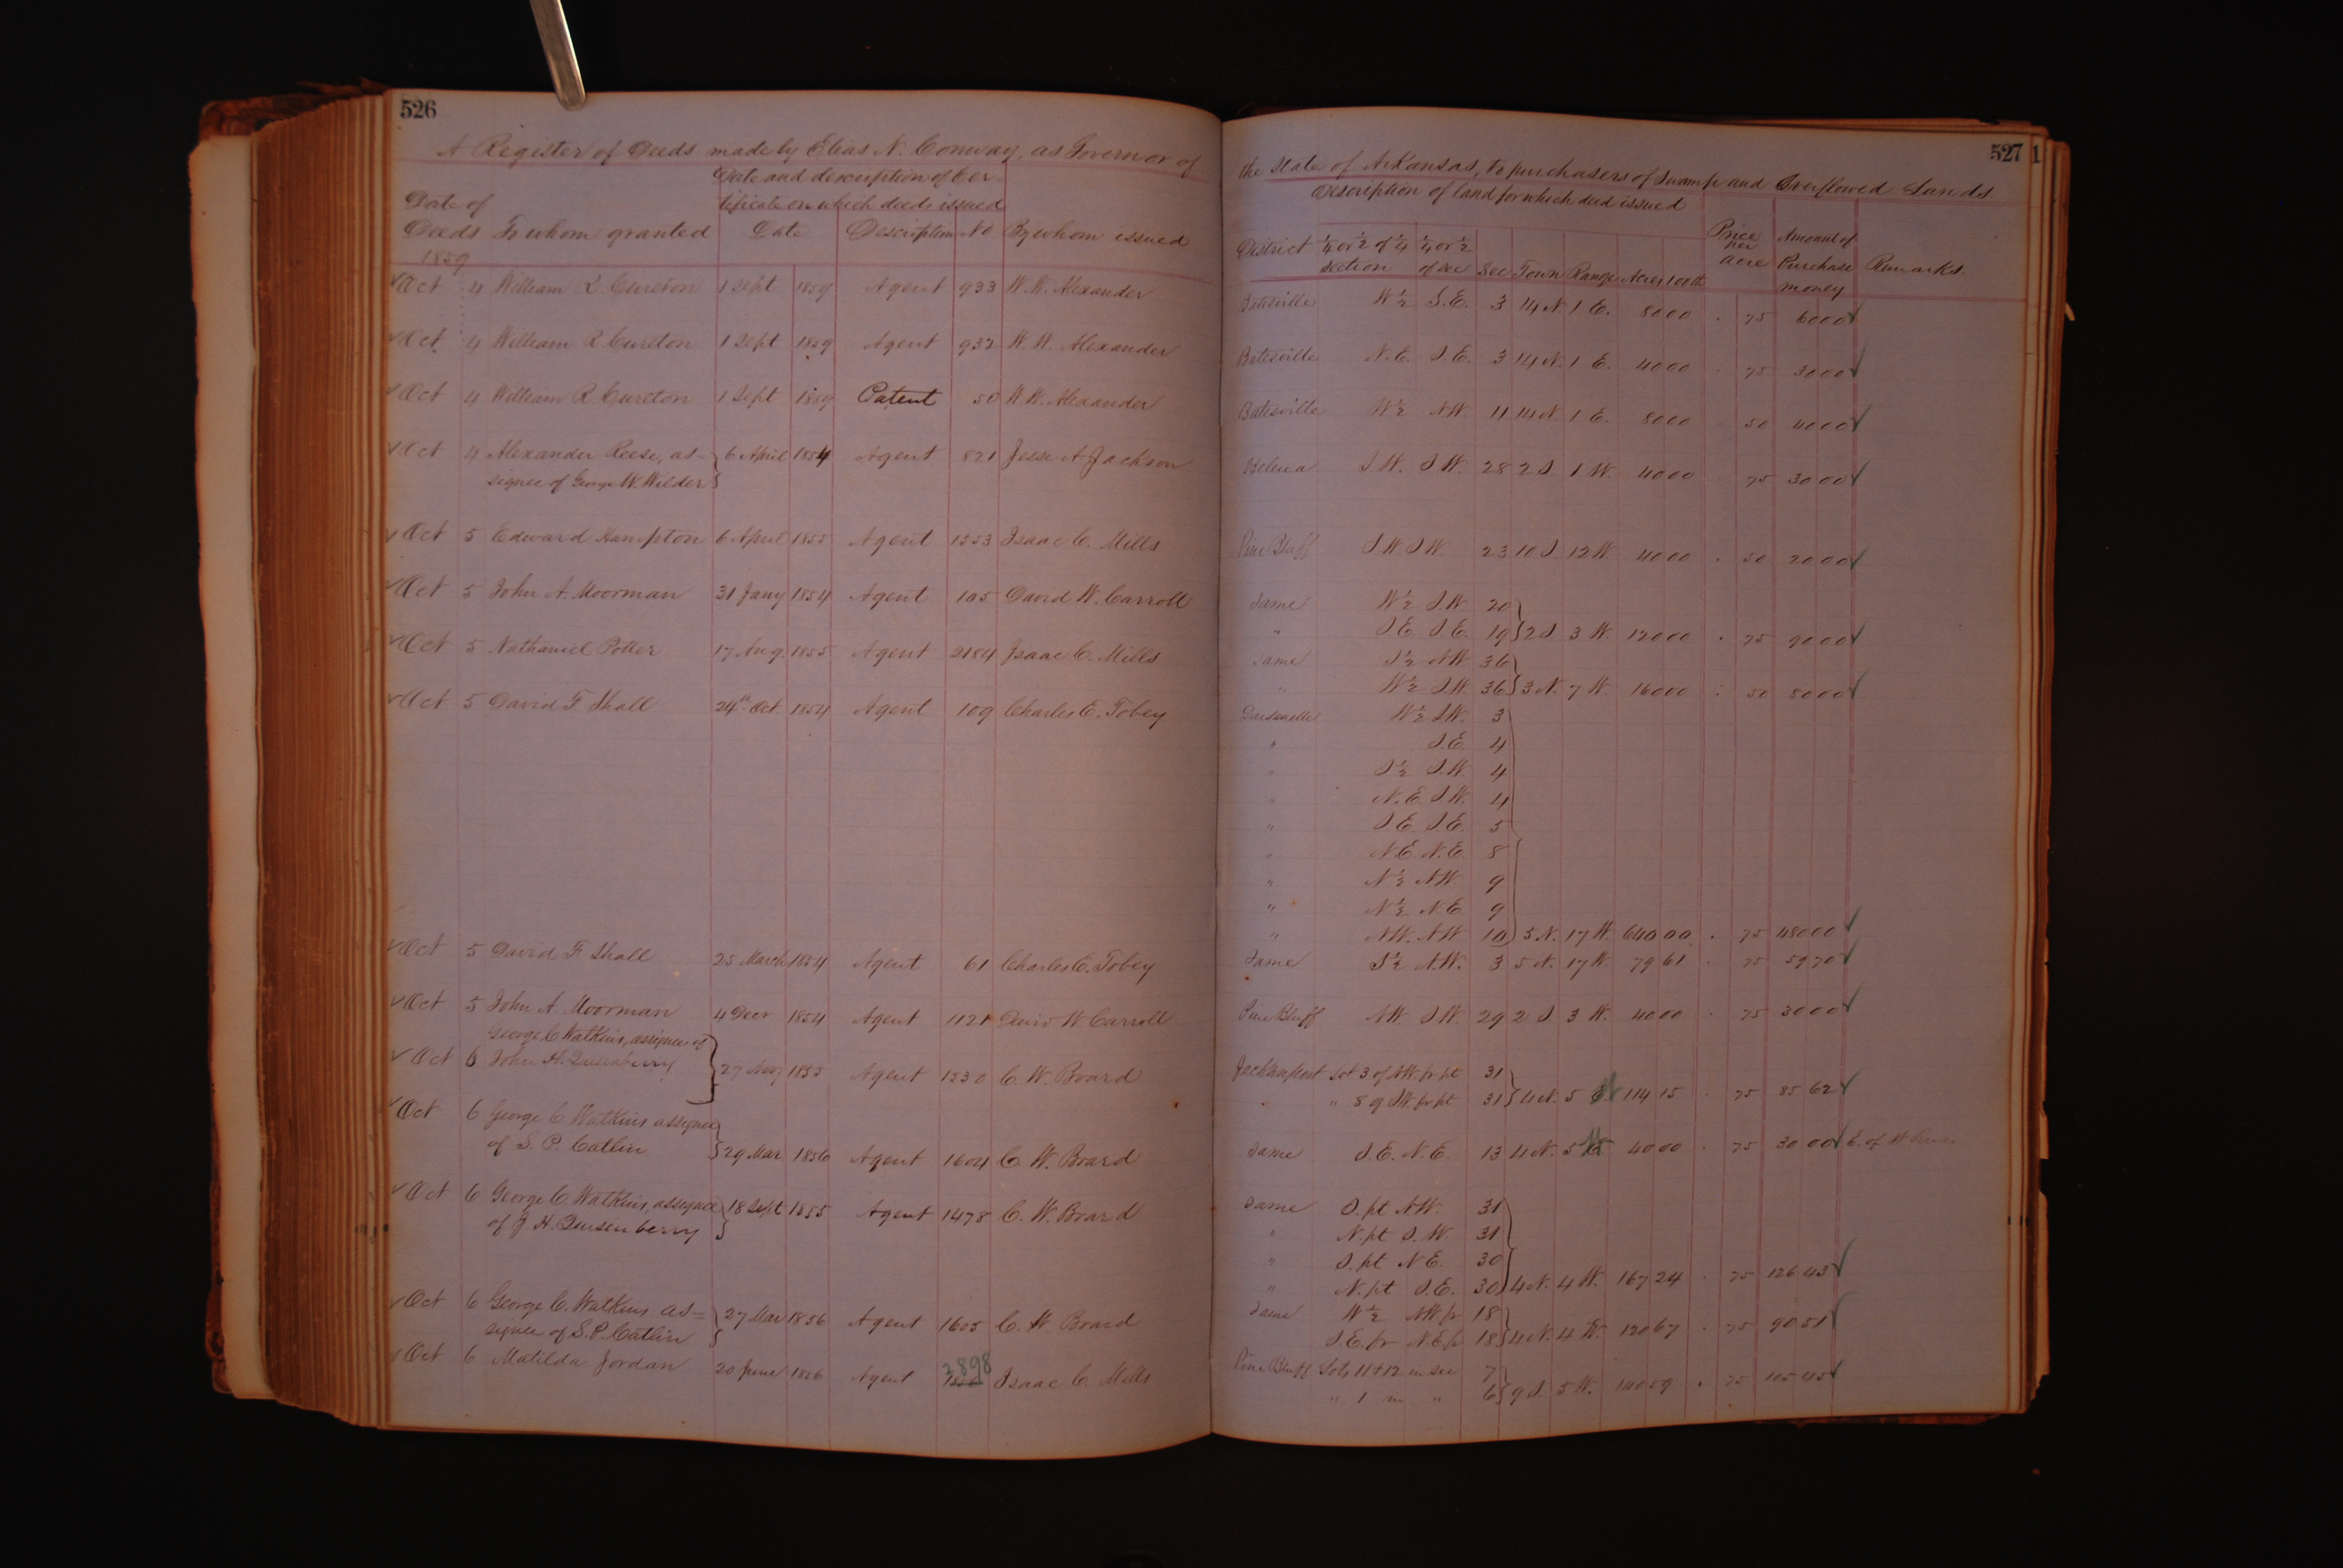 526
A Register of Deeds made by Elias N. Conway, as Governor of
Date and description of Cer
tificate on which deeds issued
Date of
Deeds To whom granted Date Description No By whom issued
1859
Oct 4 William R. Cureton 1 Sept 1859 Agent 933 W. W. Alexander
Oct 4 William R. Cureton 1 Sept 1859 Agent 932 W. W. Alexander
Oct 4 William R. Cureton 1 Sept 1859 Patent 50 W. W. Alexander
Oct 4 Alexander Reese, as- 6 April 1854 Agent 821 Jesse A Jackson
signee of George W. Wilder
Oct 5 Edward Hampton 6 April 1855 Agent 1553 Isaac C. Mills
Oct 5 John A. Moorman 31 Jany 1854 Agent 105 David W. Carroll
Oct 5 Nathaniel Potter 17 Aug. 1855 Agent 2184 Isaac C. Mills
Oct 5 David F. Shall 24th Oct 1854 Agent 109 Charles E. Tobey
Oct 5 David F. Shall 25 March 1854 Agent 61 Charles E. Tobey
Oct 5 John A. Moorman 4 Decr 1854 Agent 1121 David W Carroll
George C Watkins, assignee of
Oct 6 John H. Quisenberry 27 Nov 1855 Agent 1530 C. W. Board
Oct 6 George C Watkins assignee
of S. P. Catlin 29 Mar 1856 Agent 1604 C. W. Board
Oct 6 George C. Watkins, assignee 18 Sept 1855 Agent 1478 C. W. Board
of J. H. Quisenberry
Oct 6 George C. Watkins as= 27 Mar 1856 Agent 1605 C. W. Board
signee of S. P. Catlin
Oct 6 Matilda Jordan 20 June 1856 Agent 2898 Isaac C. Mills
527 1
the State of Arkansas, to purchasers of Swamp and Overflowed Lands
Description of land for which deed issued
District ¼ or ½ of ¼ ¼ or ½ Price per acre Amount of
section of sec Sec Town Range Acres 100th Purchase money Remarks.
Batesville W½ S.E. 3 14 N 1 E. 80 00 . 75 60 00
Batesville N.E. S.E. 3 14 N. 1 E. 40 00 . 75 30 00
Batesville W½ NW. 11 14 N. 1 E. 80 00 . 50 40 00
Helena S.W. S.W. 28 2 S 1 W. 40 00 75 30 00
Pine Bluff S W S W. 23 10 S 12 W. 40 00 . 50 20 00
Same W½ S.W 20
" S E S.E. 19 2 S 3 W. 120 00 . 75 90 00
Same S½ NW 36
" W½ S.W. 36 3 N. 7 W. 160 00 . 50 80 00
Dardanelle W½ S.W. 3
" S.E. 4
" S½ S.W. 4
" N.E S.W. 4
" S.E. S.E. 5
" N.E N.E 8
" N½ N.W. 9
" N½ N.E 9
" NW. NW 10 5 N. 17 W. 640 00 . 75 480 00
Same S½ N.W. 3 5 N. 17 W. 79 61 . 75 59 70
Pine Bluff NW. S.W. 29 2 S 3 W. 40 00 . 75 30 00
Jacksonport Lot 3 of NW. fr pt 31
" 8 of SW. fr pt 31 4 N. 5 W 114 15 . 75 85 62
Same S.E. N.E. 13 4 N. 5 W 40 00 . 75 30 00 E. of W River
Same S. pt NW. 31
" N. pt S.W. 31
" S. pt N.E. 30
" N. pt S.E. 30 4 N. 4 W. 167 24 . 75 126 43
Same W½ NW fr 18
S.E. fr N.E fr 18 4 N. 4 W. 120 67 . 75 90 51
Pine Bluff Lots 11 + 12 in sec 7
" 1 in " 6 9 S. 5 W. 140 59 . 75 105 45